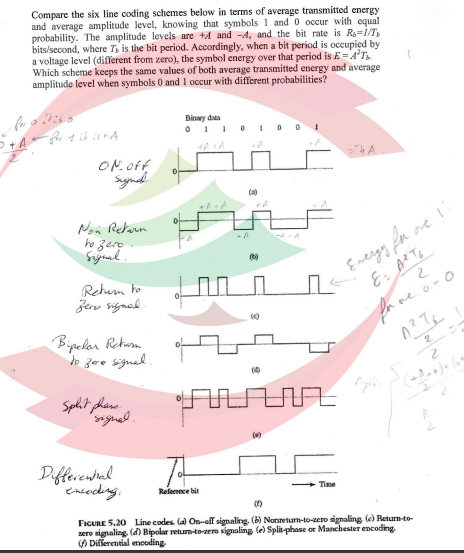 Compare the six line coding schemes below in terms of average transmitted energy
and average amplitude level, knowing that symbols 1 and 0 occur with equal
probability. The amplitude levels are +A and –A, and the bit rate is Rb=1/Tb
bits/second, where Tb is the bit period. Accordingly, when a bit period is occupied by
a voltage level (different from zero), the symbol energy over that period is E = A²Tb.
Which scheme keeps the same values of both average transmitted energy and average
amplitude level when symbols 0 and 1 occur with different probabilities?
Binary data
0 1 1 0 1 0 0 1
+A +A
ON-OFF
Signal
0
(a)
+A+A +A
Non Return
to zero
Signal.
0
-A -A
(b)
Energy for one 1:
E = A²Tb
2
for one 0 → 0
Return to
Zero signal
0
(c)
A²Tb
2
2
Bipolar Return
to zero signal
0
(d)
Split phase
signal
0
(e)
Differential
encoding.
0
Reference bit
Time
(f)
FIGURE 5.20 Line codes. (a) On–off signaling. (b) Nonreturn-to-zero signaling. (c) Return-to-
zero signaling. (d) Bipolar return-to-zero signaling. (e) Split-phase or Manchester encoding.
(f) Differential encoding.